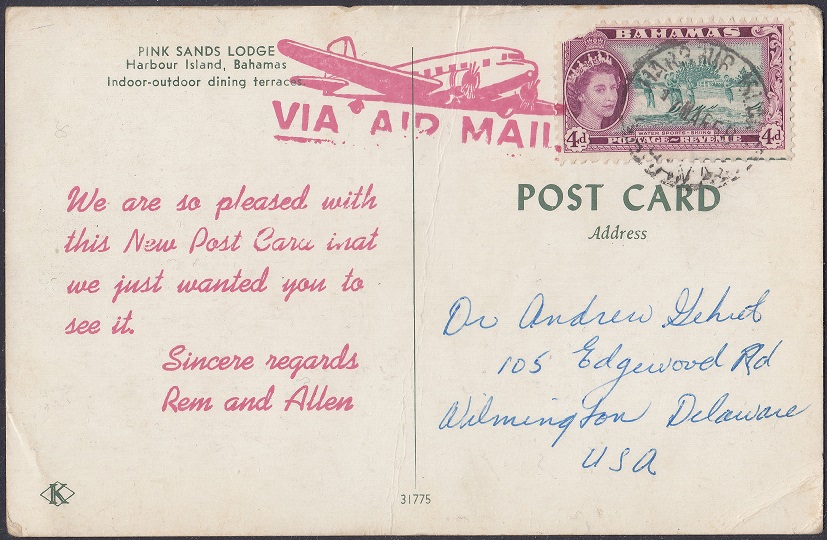 PINK SANDS LODGE
Harbour Island, Bahamas
Indoor-outdoor dining terraces
VIA AIR MAIL
BAHAMAS
4d
4d
WATER SPORTS - SKIING
POSTAGE ~ REVENUE
We are so pleased with
this New Post Card that
we just wanted you to
see it.
Sincere regards
Rem and Allen
POST CARD
Address
Dr Andrew
105 Edgewood Rd
Wilmington Delaware
USA
K
31775